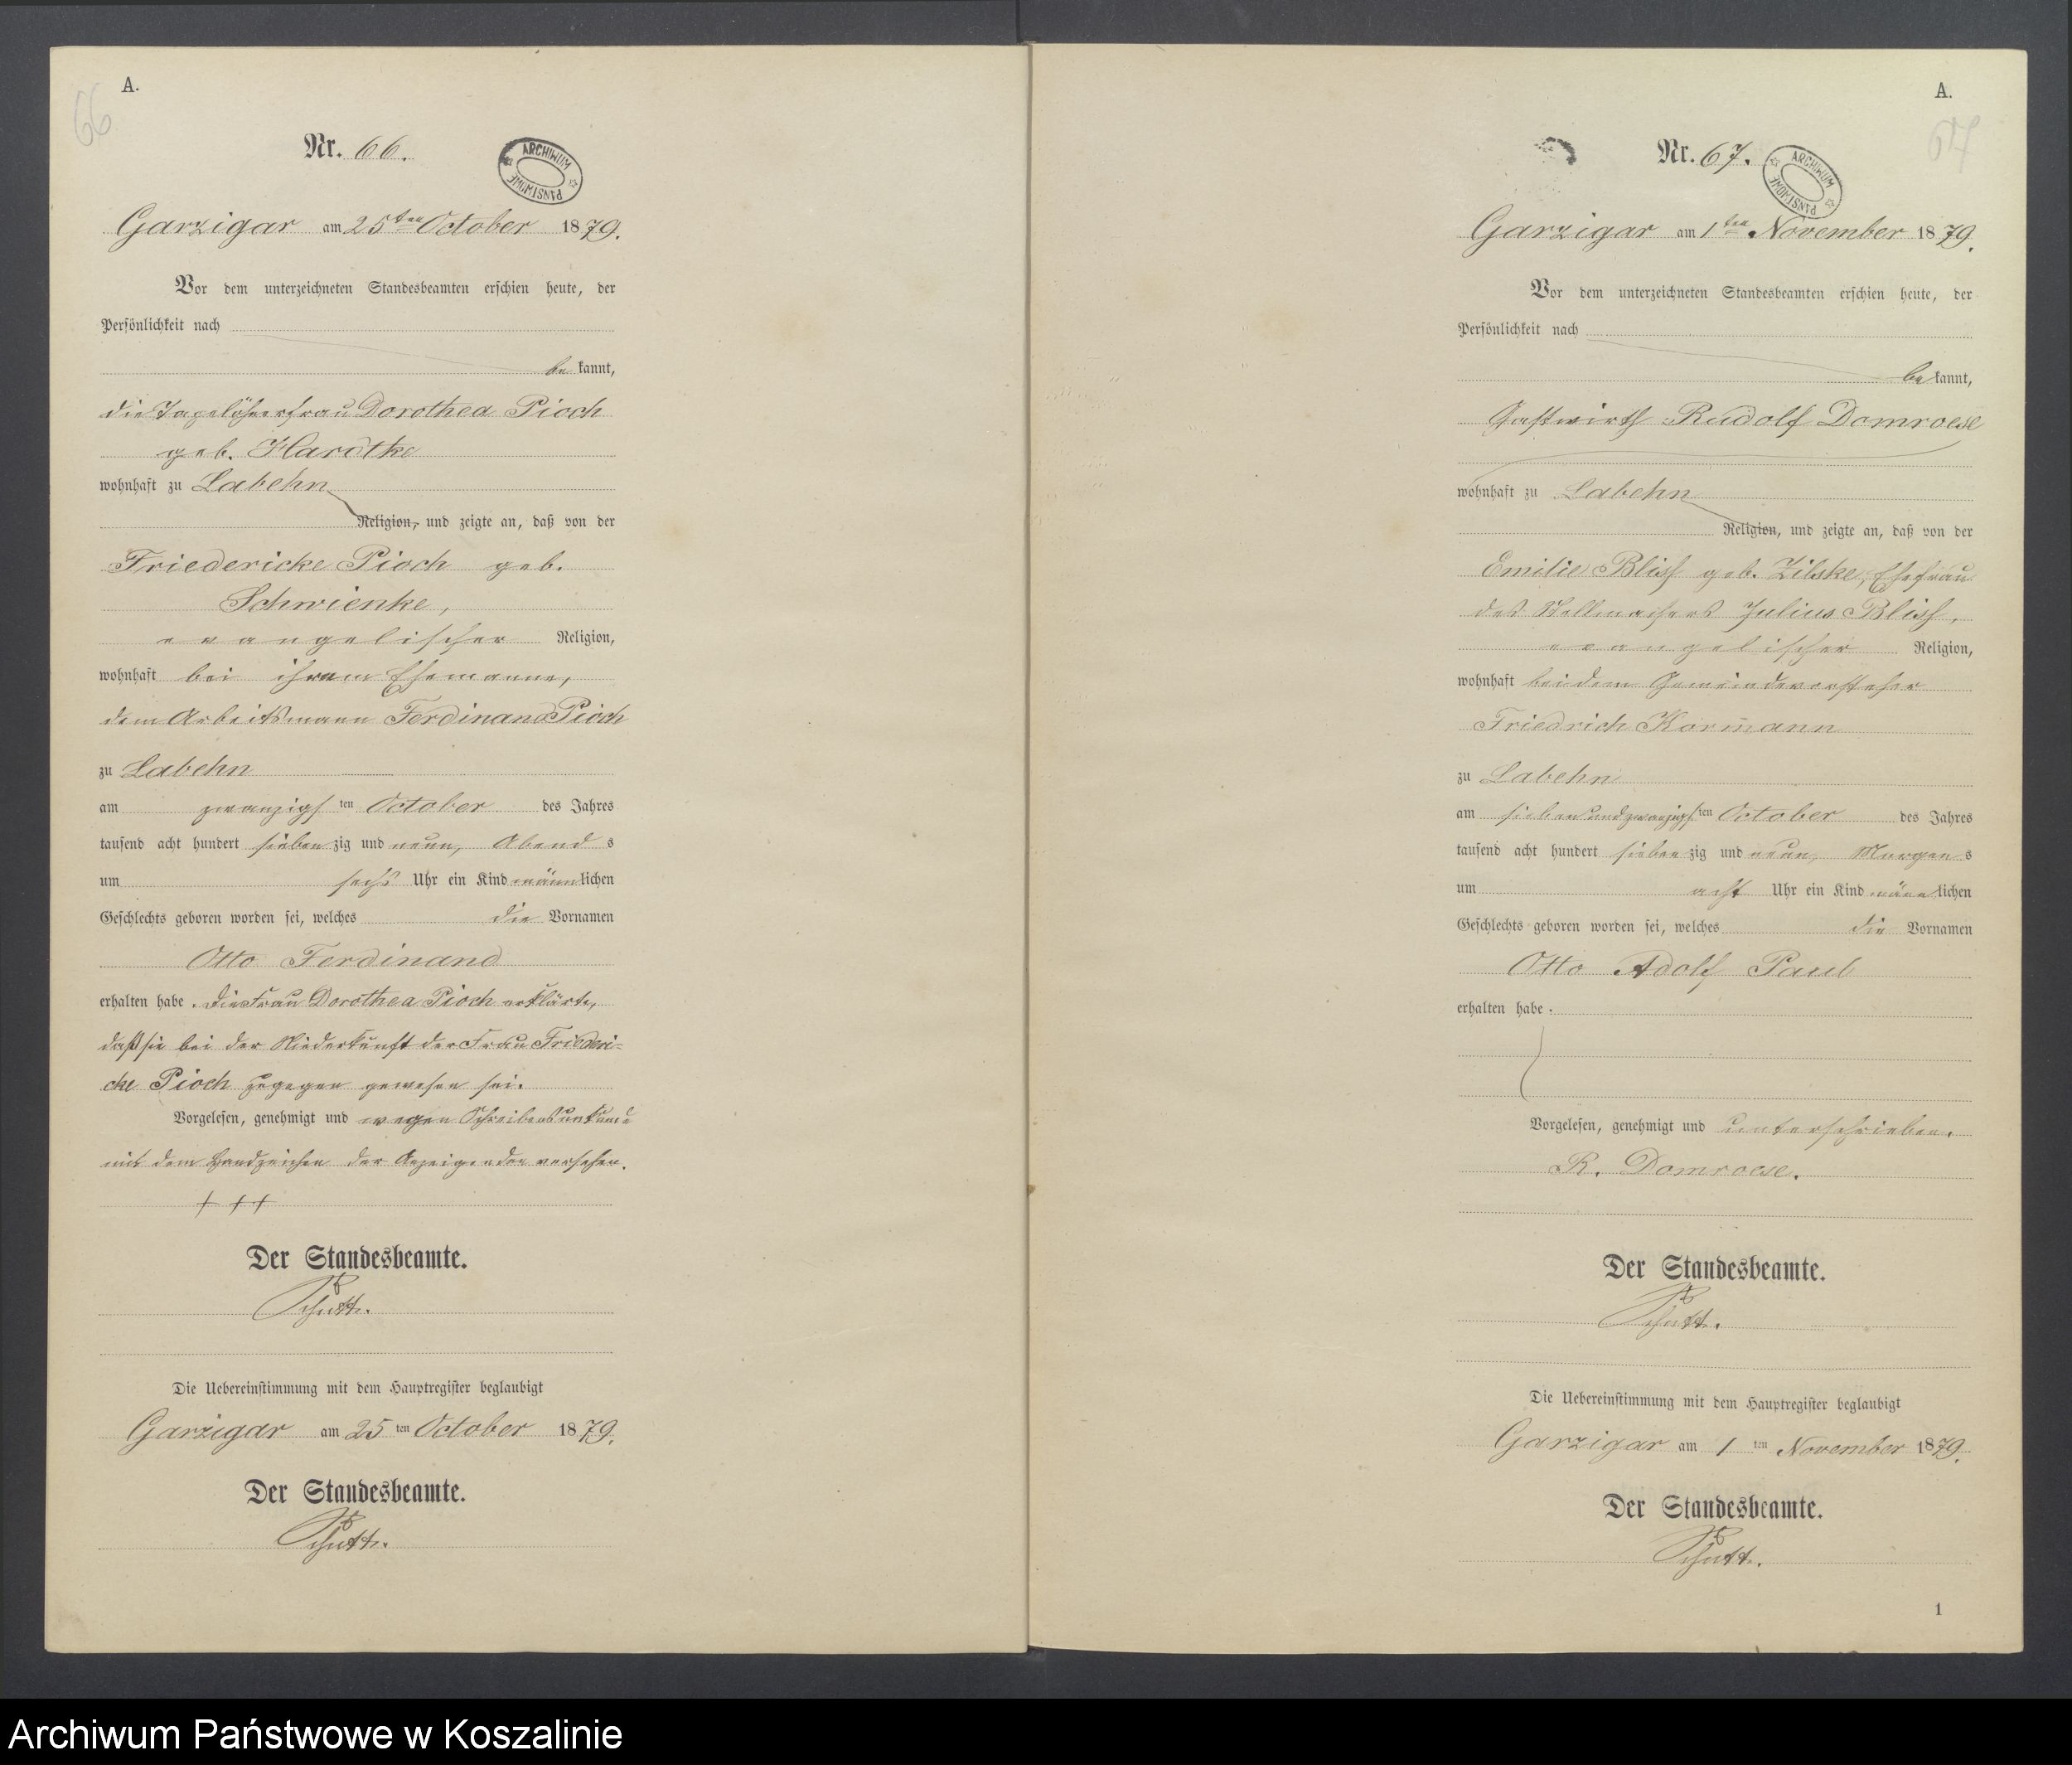 66
A.
Nr. 66.
ARCHIWUM PAŃSTWOWE
Garzigar am 25ten October 1879.
Vor dem unterzeichneten Standesbeamten erschien heute, der
Persönlichkeit nach
be kannt,
die Tagelöhnerfrau Dorothea Pioch
geb. Hardtke
wohnhaft zu Labehn
Religion, und zeigte an, daß von der
Friedericke Pioch geb.
Schwienke,
evangelischer Religion,
wohnhaft bei ihrem Ehemanne,
dem Arbeitsmann Ferdinand Pioch
zu Labehn
am zwanzigsten October des Jahres
tausend acht hundert siebenzig und neun, Abends
um sechs Uhr ein Kind männlichen
Geschlechts geboren worden sei, welches die Vornamen
Otto Ferdinand
erhalten habe. Die Frau Dorothea Pioch erklärte,
daß sie bei der Niederkunft der Frau Friederi=
cke Pioch zugegen gewesen sei.
Vorgelesen, genehmigt und wegen Schreibensunkunde
mit dem Handzeichen der Anzeigenden versehen.
+ + +
Der Standesbeamte.
Schutt.
Die Uebereinstimmung mit dem Hauptregister beglaubigt
Garzigar am 25 ten October 1879.
Der Standesbeamte.
Schutt.
A.
67
Nr. 67.
ARCHIWUM PAŃSTWOWE
Garzigar am 1ten November 1879.
Vor dem unterzeichneten Standesbeamten erschien heute, der
Persönlichkeit nach
be kannt,
Gastwirth Rudolf Domroese
wohnhaft zu Labehn
Religion, und zeigte an, daß von der
Emilie Bliss geb. Zilske, Ehefrau
des Stellmachers Julius Bliss,
evangelischer Religion,
wohnhaft bei dem Gemeindevorsteher
Friedrich Kormann
zu Labehn
am siebenundzwanzigsten October des Jahres
tausend acht hundert siebenzig und neun, Morgens
um acht Uhr ein Kind männlichen
Geschlechts geboren worden sei, welches die Vornamen
Otto Adolf Paul
erhalten habe.
Vorgelesen, genehmigt und unterschrieben.
R. Domroese.
Der Standesbeamte.
Schutt.
Die Uebereinstimmung mit dem Hauptregister beglaubigt
Garzigar am 1 ten November 1879.
Der Standesbeamte.
Schutt.
1
Archiwum Państwowe w Koszalinie